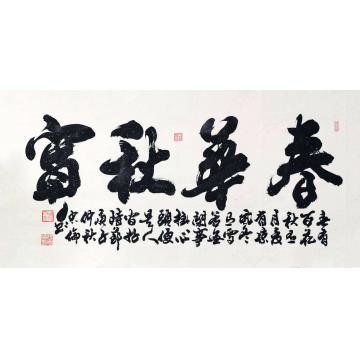 春華秋實
春有
百花
秋有
月夏
有涼
風冬
有雪
若無
閑事
掛心
頭便
是人
間好
時節
庚子
仲秋